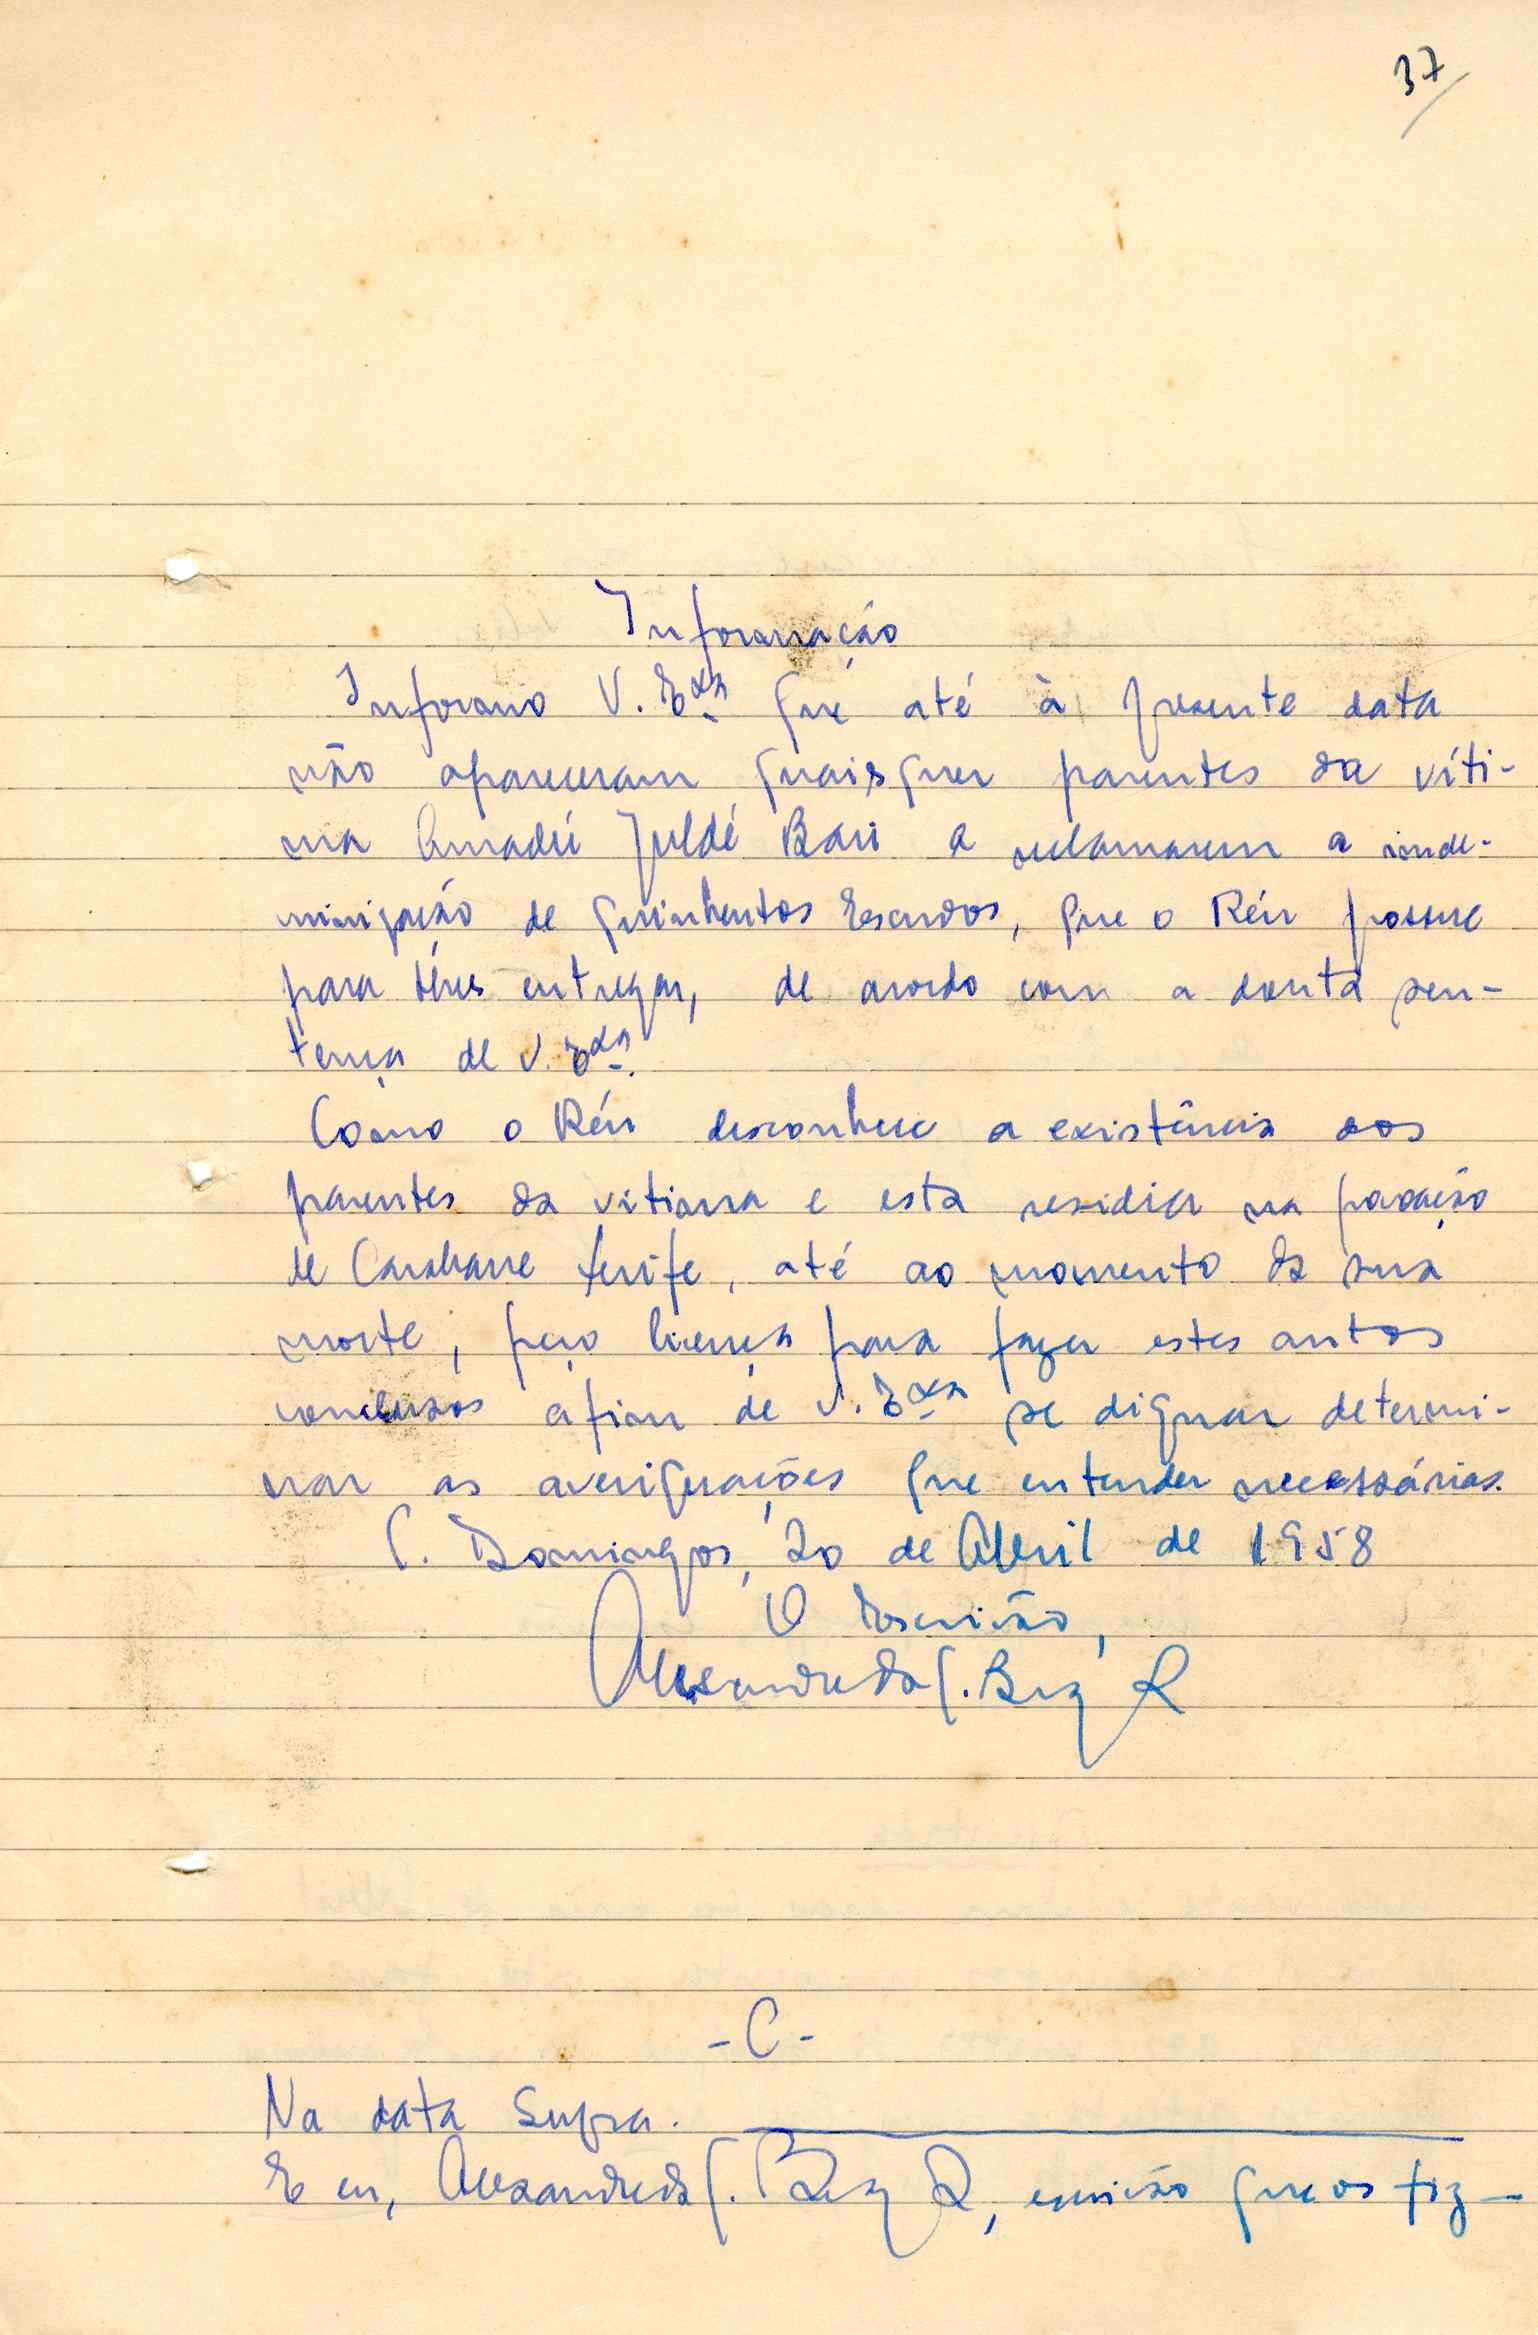 37
Informação
Informo V. Exª que até à presente data
não apareceram quaisquer parentes da víti-
ma Amadú Juldé Bari a reclamarem a inde-
minização de quinhentos Escudos, que o Réu possue
para lhes entregar, de acordo com a douta sen-
tença de V. Exª.
Como o Réu desconhece a existência dos
parentes da vitima e esta residia na povoação
de até ao momento da sua
morte, peço licença para fazer estes autos
conclusos afim de V. Exª se dignar determi-
nar as averiguações que entender necessárias.
C. Domingos, 20 de Abril de 1958
O Escrivão,
Alexandre da
- C -
Na data supra.
E eu, Alexandre da escrivão que os fiz